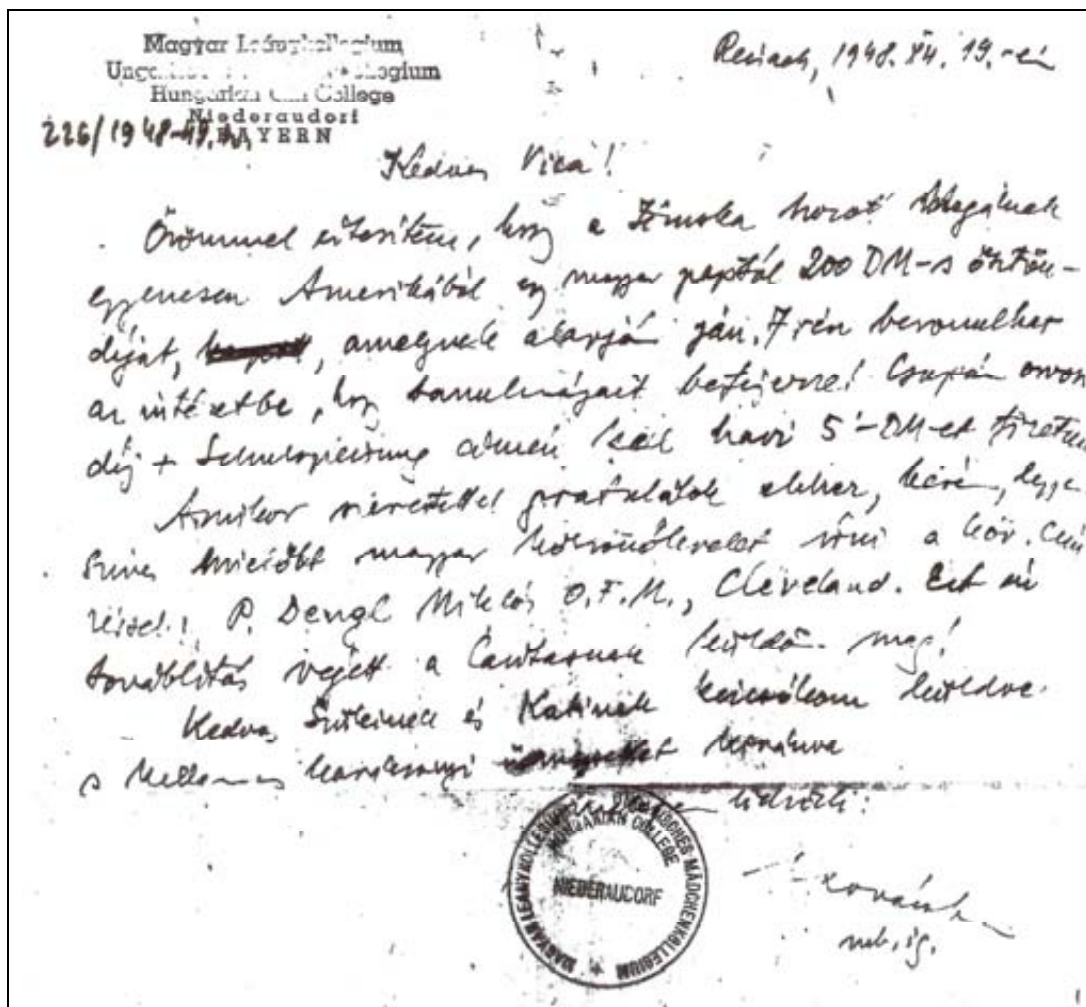 Magyar Leánykollegium
Hungarian Girl College
Niederaudorf
226/1948-49. BAYERN
1948. XII. 19.-én
Kedves Vica!
Örömmel értesítem, hogy a
egyenesen Amerikából egy magyar paptól 200 DM-s ösztön-
díját, amelynek alapján jan. 7-én bevonulhat
az intézetbe, hogy tanulmányait befejezze! Csupán orvosi
díj + Schulspeisung címén kell havi 5'-DM-et fizetni
Amikor szeretettel gratulálok ehhez, kérem, legyen
szíves mielőbb magyar köszönőlevelet írni a köv. cím
P. Dengl Miklós O.F.M., Cleveland. Ezt
továbbítás végett a Caritasnak küldön- meg!
Kedves Szüleinek és Katinak kézcsókom küldve
s kellemes karácsonyi ünnepeket kívánva
üdvözli:
MAGYAR LEANYKOLLEGIUM
HUNGARIAN COLLEGE
NIEDERAUDORF
MÄDCHENKOLLEGIUM
mb. ig.